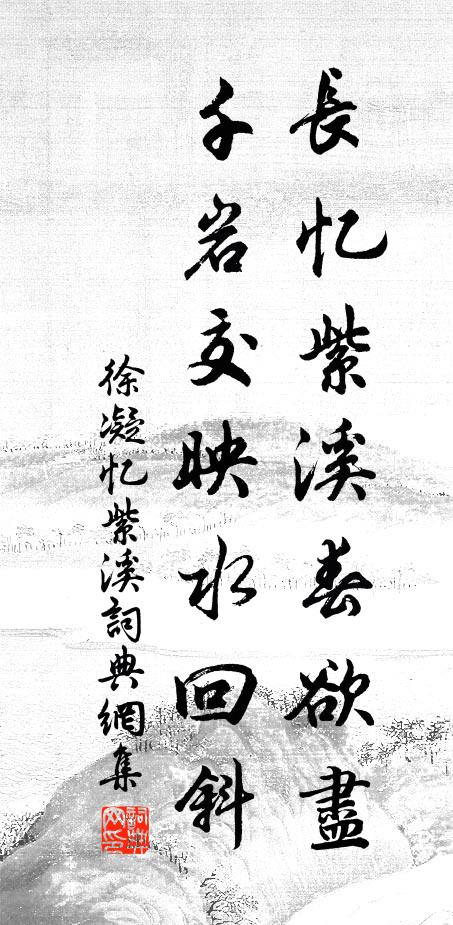 長忆紫溪春欲盡
千岩交映水回斜
徐凝忆紫溪詞典網集